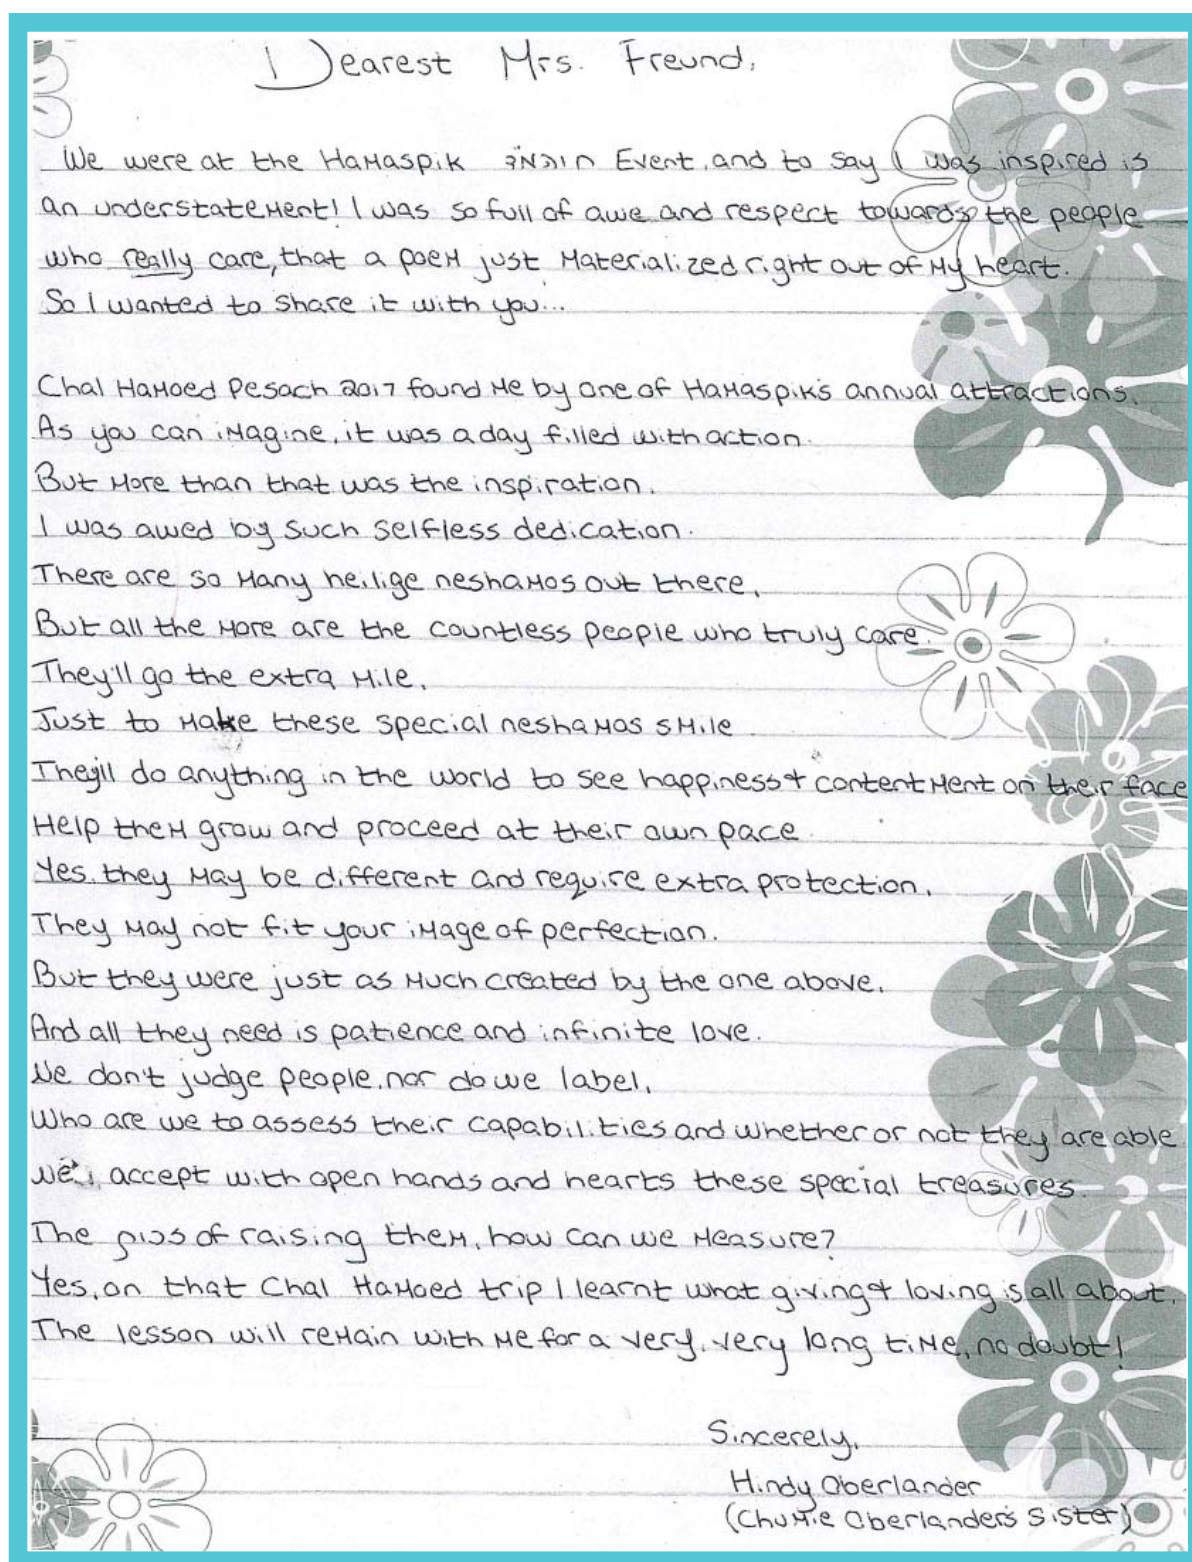 Dearest Mrs. Freund,
We were at the Hamaspik חוהמ"פ Event, and to say I was inspired is
an understatement! I was so full of awe and respect towards the people
who really care, that a poem just materialized right out of my heart.
So I wanted to share it with you...
Chal Hamoed Pesach 2017 found me by one of Hamaspik's annual attractions.
As you can imagine, it was a day filled with action.
But more than that was the inspiration.
I was awed by such selfless dedication.
There are so many heilige neshamos out there,
But all the more are the countless people who truly care.
They'll go the extra mile,
Just to make these special neshamas smile
They'll do anything in the world to see happiness & contentment on their face
Help them grow and proceed at their own pace.
Yes, they may be different and require extra protection,
They may not fit your image of perfection.
But they were just as much created by the one above,
And all they need is patience and infinite love.
We don't judge people, nor do we label,
Who are we to assess their capabilities and whether or not they are able
We accept with open hands and hearts these special treasures.
The of raising them, how can we measure?
Yes, on that Chal Hamoed trip I learnt what giving & loving is all about,
The lesson will remain with me for a very, very long time, no doubt!
Sincerely,
Hindy Oberlander
(Chumie Oberlander's Sister)